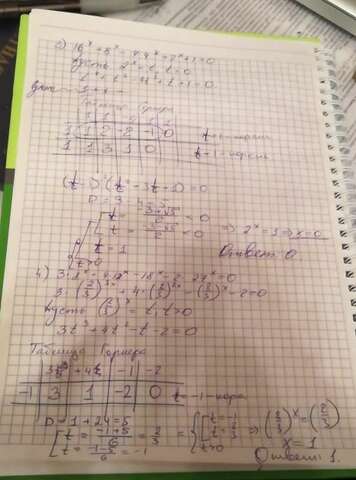 2) 16^x + 8^x - 4·4^x + 2^x + 1 = 0
Пусть 2^x = t, t > 0
t^4 + t^3 - 4t^2 + t + 1 = 0
Таблица Горнера
1 | 1 | 2 | -2 | -1 | 0 t = 1 - корень
1 | 1 | 3 | 1 | 0 t = 1 - корень
t = (-3+√5)/2 < 0
t = (-3-√5)/2 < 0 ⇒ 2^x = 1 ⇒ x = 0
t = 1
t > 0 Ответ: 0
4) 3·8^x + 4·12^x - 18^x - 2·27^x = 0
3·(2/3)^3x + 4·(2/3)^2x - (2/3)^x - 2 = 0
Пусть (2/3)^x = t, t > 0
3t^3 + 4t^2 - t - 2 = 0
Таблица Горнера
-1 | 3 | 1 | -2 | 0 t = -1 - корень
D = 1 + 24 = 5
t = (-1+5)/6 = 2/3
t = (-1-5)/6 = -1
t = -1
t = 2/3
t > 0
⇒ (2/3)^x = (2/3)
x = 1
Ответ: 1.